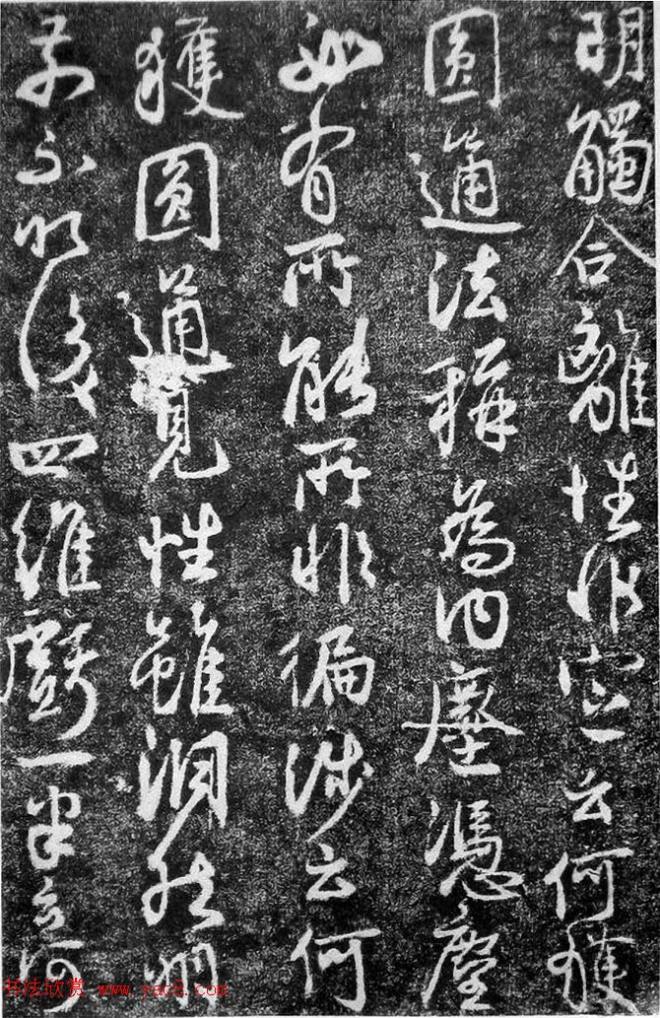 明觸合離性非定云何獲
圓通法稱為內塵憑塵
必有所能所非徧涉云何
獲圓通見性雖洞然明
前不明後四維虧一半云何
书法欣赏 www.yac8.com